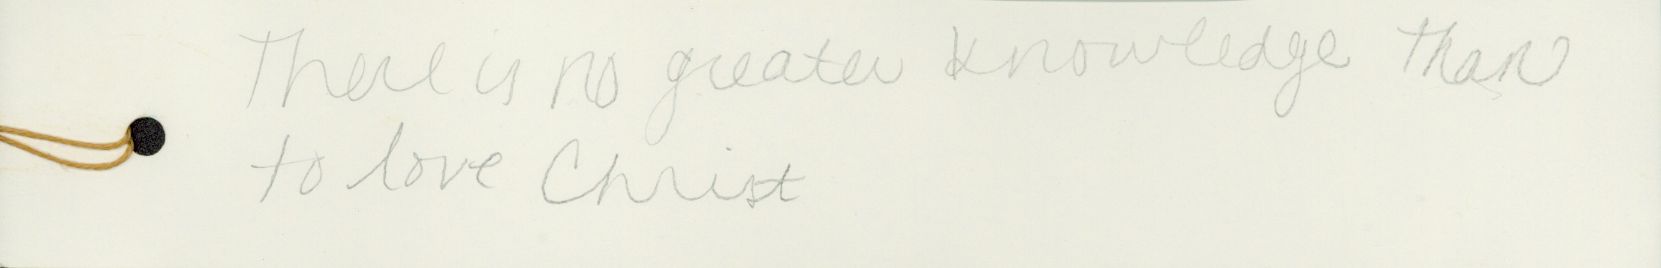 There is no greater knowledge than
to love Christ